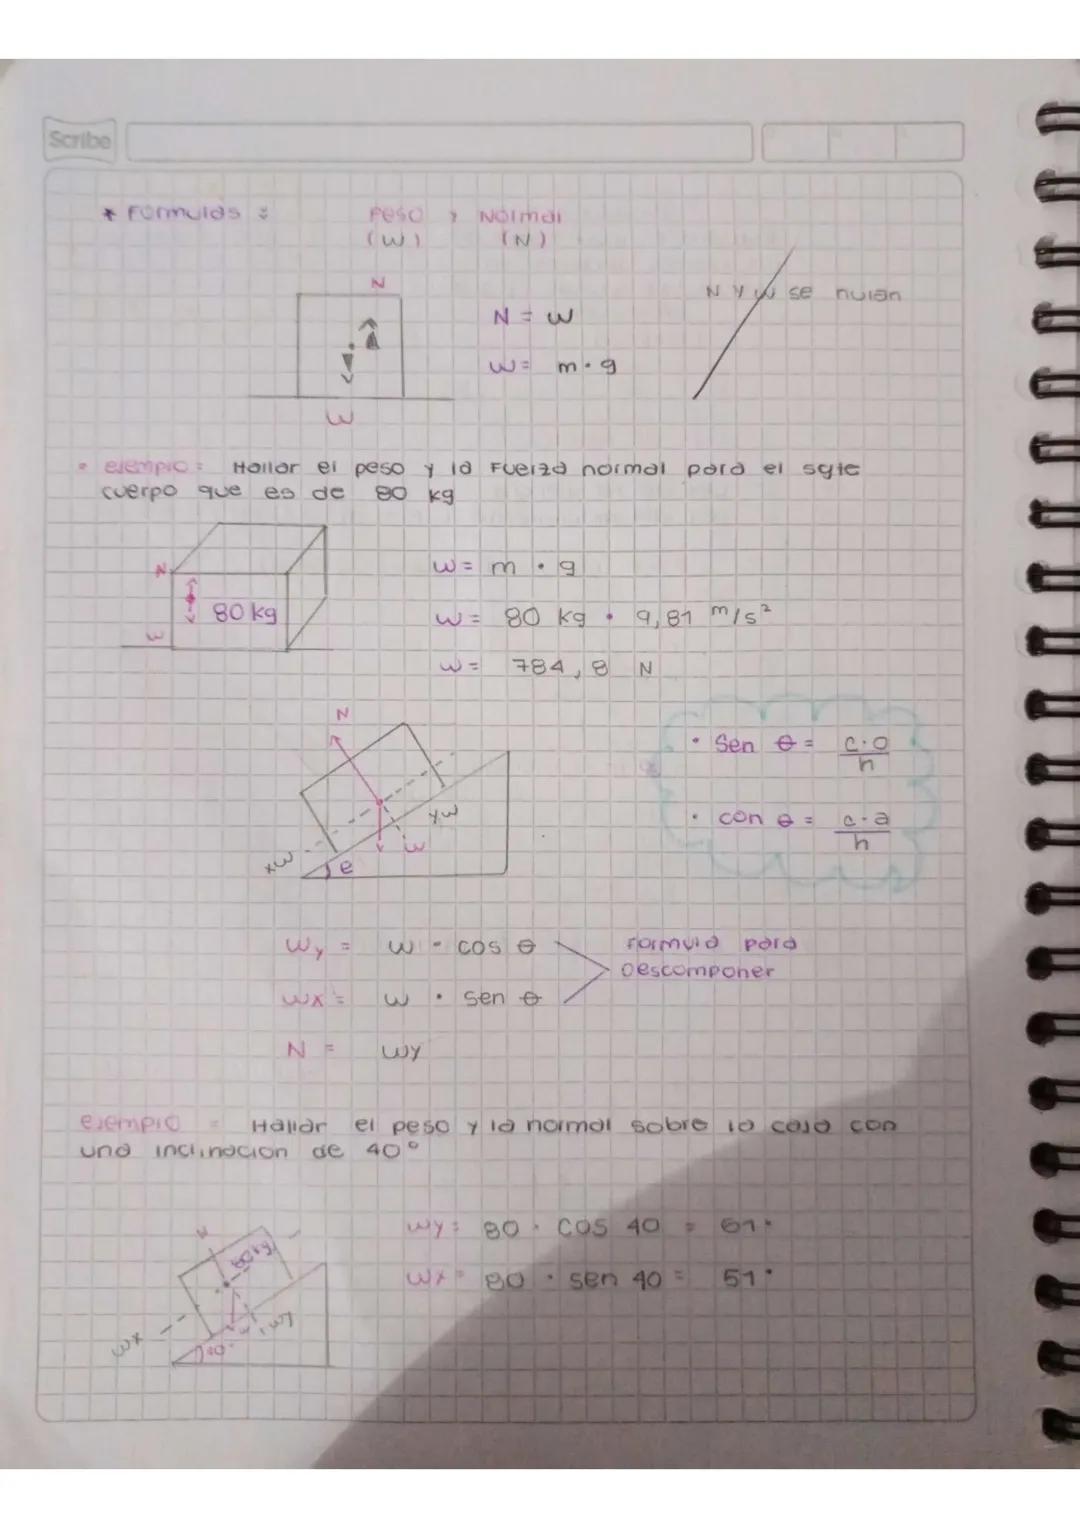 Scribe
* Formulas : Peso y Normal
(W) (N)
N
N y W se nulan
N = W
W = m · g
W
• ejemplo: Hallar el peso y la Fuerza normal para el sgte
cuerpo que es de 80 kg
W = m · g
N
80 kg
W = 80 kg · 9,81 m/s²
W
W = 784,8 N
N
• Sen θ = c·o/h
Wy
• con θ = c·a/h
W
Wx
θ
Wy = W · cos θ
Formula para
Descomponer
Wx = W · sen θ
N = Wy
ejemplo = Hallar el peso y la normal sobre la caja con
una inclinacion de 40°
N
Wy = 80 · cos 40 = 61°
80 kg
Wx = 80 · sen 40 = 51°
Wy
Wx